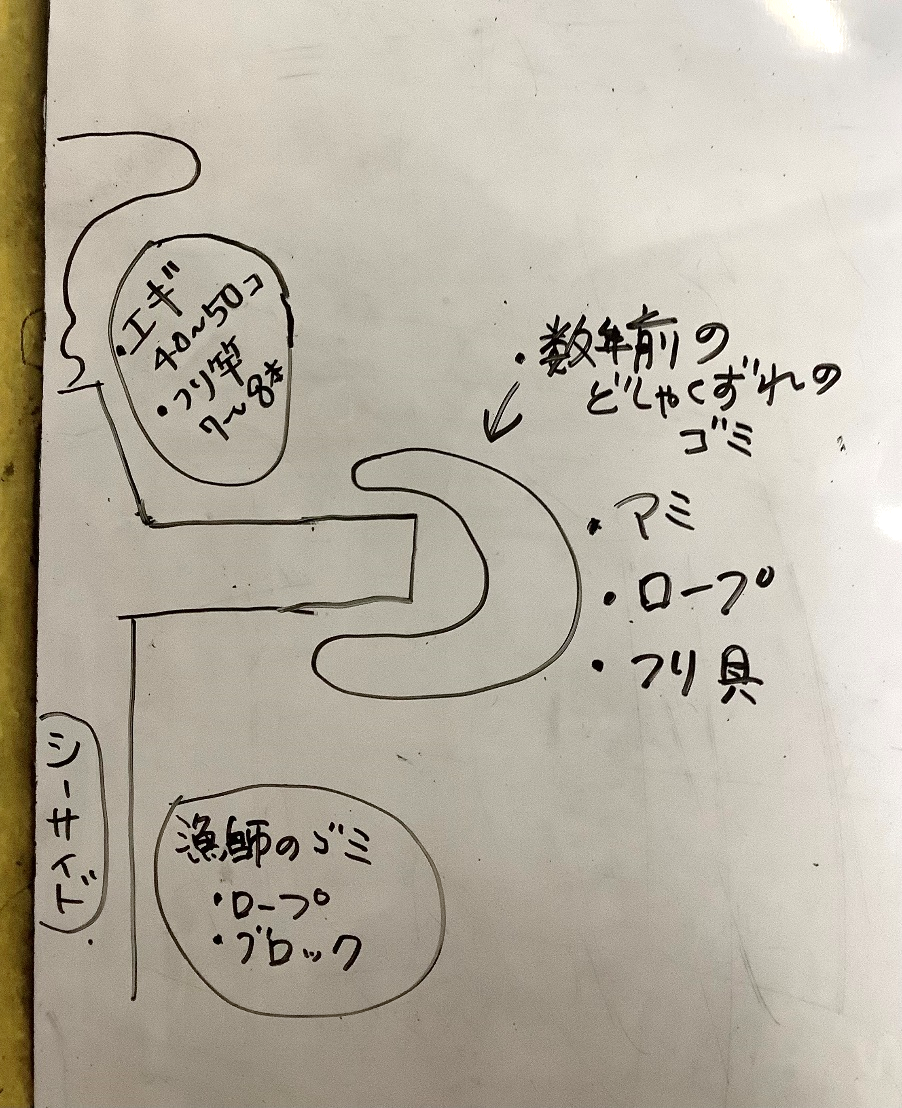 ・エギ
40〜50コ
・つり竿
7〜8本
・数年前の
どしゃくずれの
ゴミ
・アミ
・ロープ
・つり具
シーサイド
漁師のゴミ
・ロープ
・ブロック